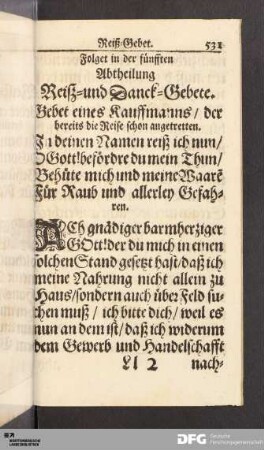 Reiß-Gebet. 531
Folget in der fünfften
Abtheilung
Reiß- und Danck-Gebete.
Gebet eines Kauffmanns / der
bereits die Reise schon angetretten.
In deinen Namen reiß ich nun /
O Gott! befördre du mein Thun /
Behüte mich und meine Waarē
Für Raub und allerley Gefah-
ren.
ACh gnädiger barmherziger
GOtt! der du mich in einen
solchen Stand gesetzt hast / daß ich
meine Nahrung nicht allein zu
Haus / sondern auch über Feld su-
chen muß / ich bitte dich / weil es
nun an dem ist / daß ich widerum
dem Gewerb und Handelschafft
Ll 2 nach-
DFG Deutsche
Forschungsgemeinschaft